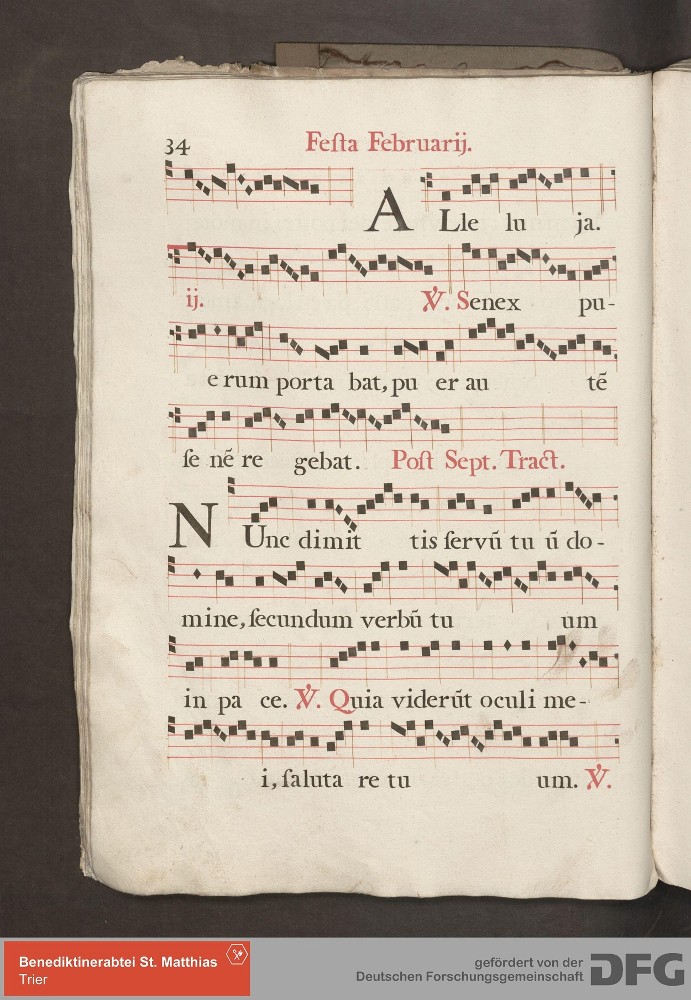 34 Feſta Februarij.
A Lle lu ja.
ij. ℣. Senex pu-
e rum porta bat, pu er au tē
ſe nē re gebat. Poſt Sept. Tract.
N Unc dimit tis ſervū tu ū do-
mine, ſecundum verbū tu um
in pa ce. ℣. Quia viderūt oculi me-
i, ſaluta re tu um. ℣.
Benediktinerabtei St. Matthias
Trier
gefördert von der
Deutschen Forschungsgemeinschaft
DFG